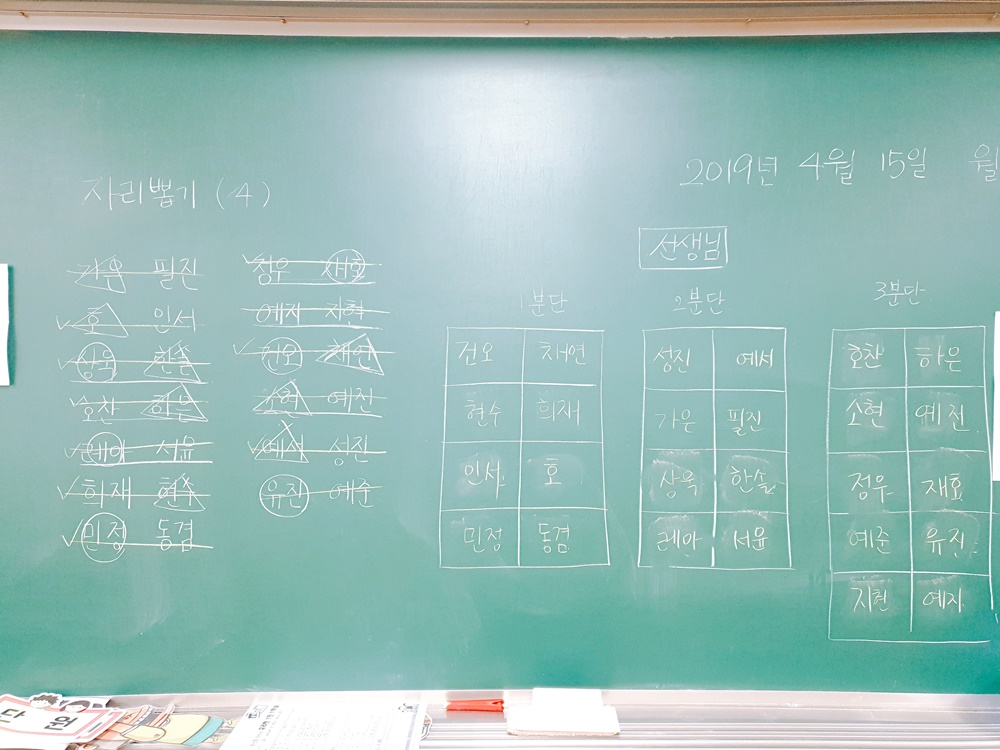 2019년 4월 15일 월
자리뽑기 (4)
선생님
가은 필진
호 인서
상욱 한솔
호찬 하은
레아 서윤
희재 현수
민정 동겸
정우 재효
예지 지현
건오 채연
소현 예진
예서 성진
유진 예준
1분단
건오 채연
현수 희재
인서 호
민정 동겸
2분단
성진 예서
가은 필진
상욱 한솔
레아 서윤
3분단
호찬 하은
소현 예진
정우 재효
예준 유진
지현 예지
단원